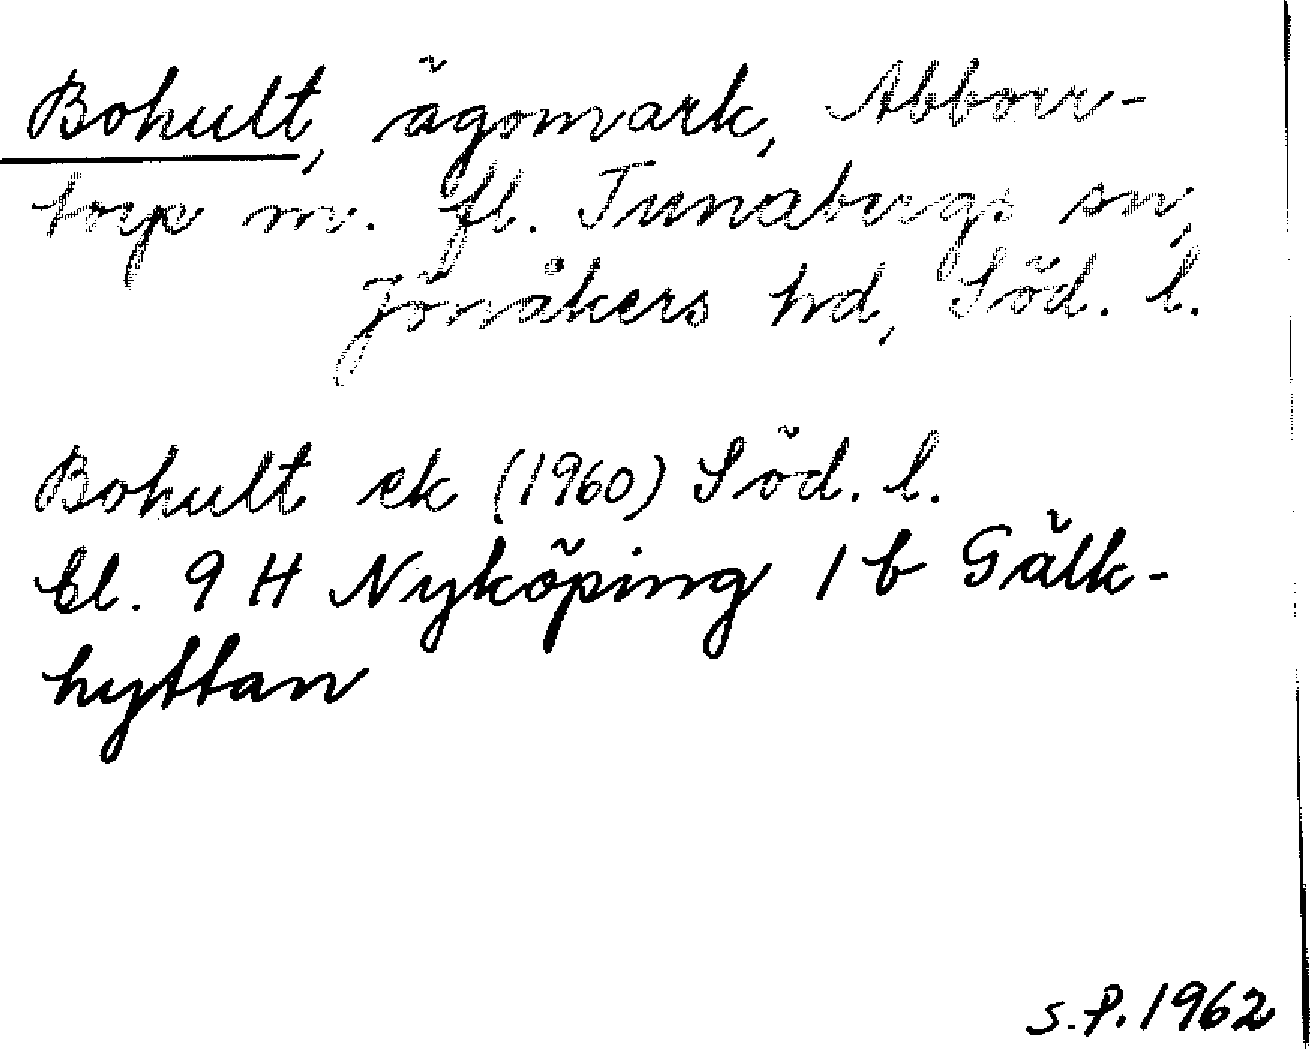 Bohult, ägomark, Abborr-
torp m. fl. Tunabergs sn,
Jönåkers hd, Söd. l.
Bohult ek (1960) Söd. l.
Bl. 9 H Nyköping 1 b Gälk-
hyttan
S.P. 1962